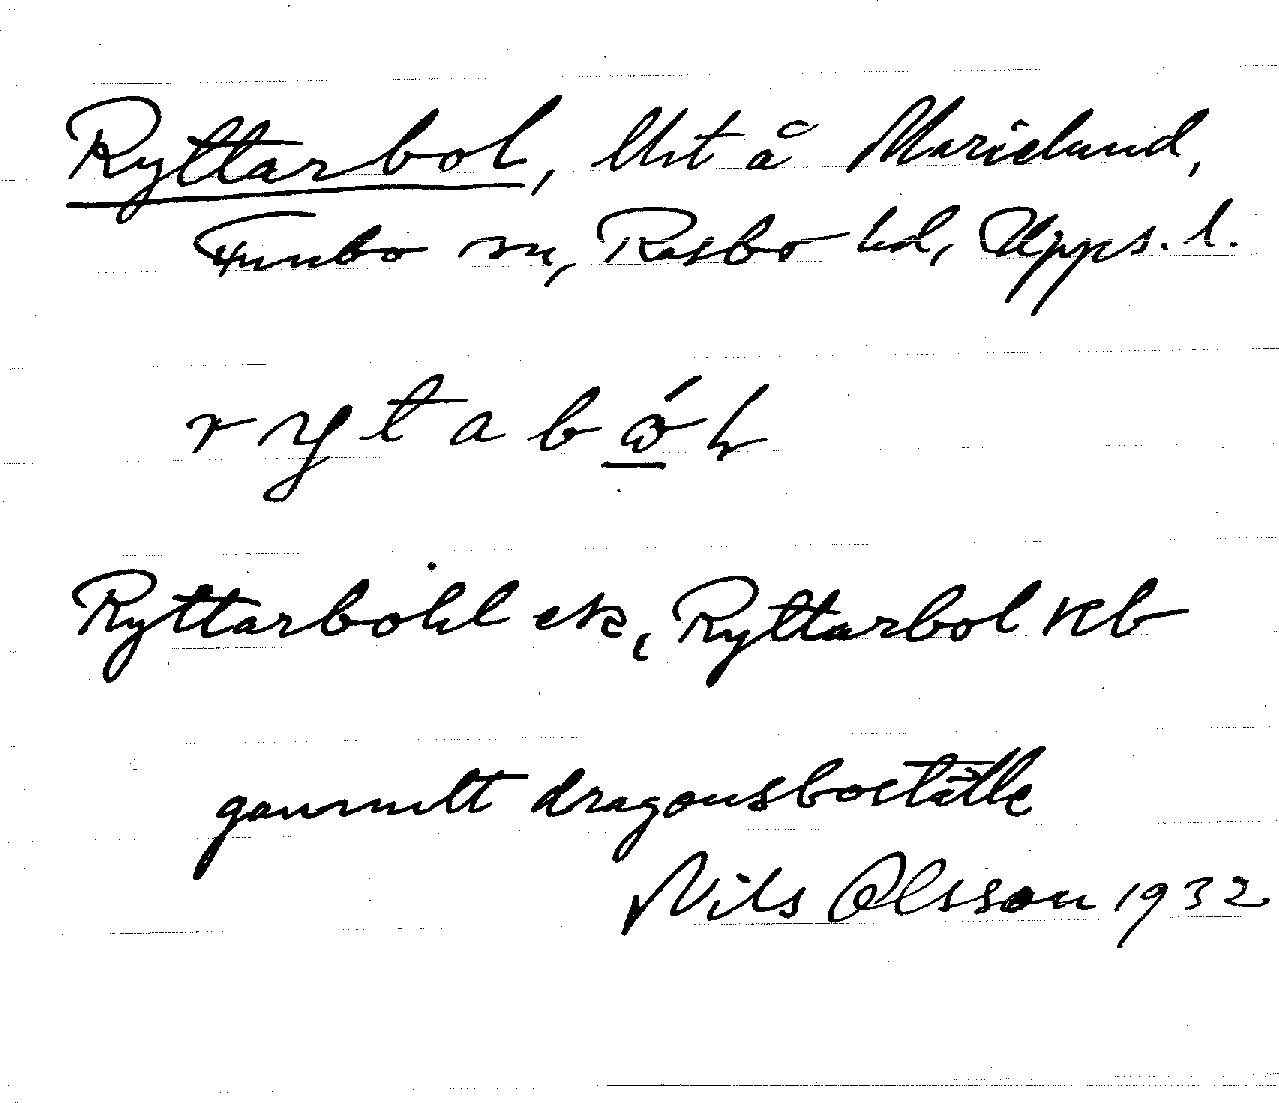 Ryttarbol, lht å Marielund,
Funbo sn, Rasbo hd, Upps. l.
rytabó̲ɫ
Ryttarbohl ek, Ryttarbol kb
gammalt dragonboställe
Nils Olsson 1932